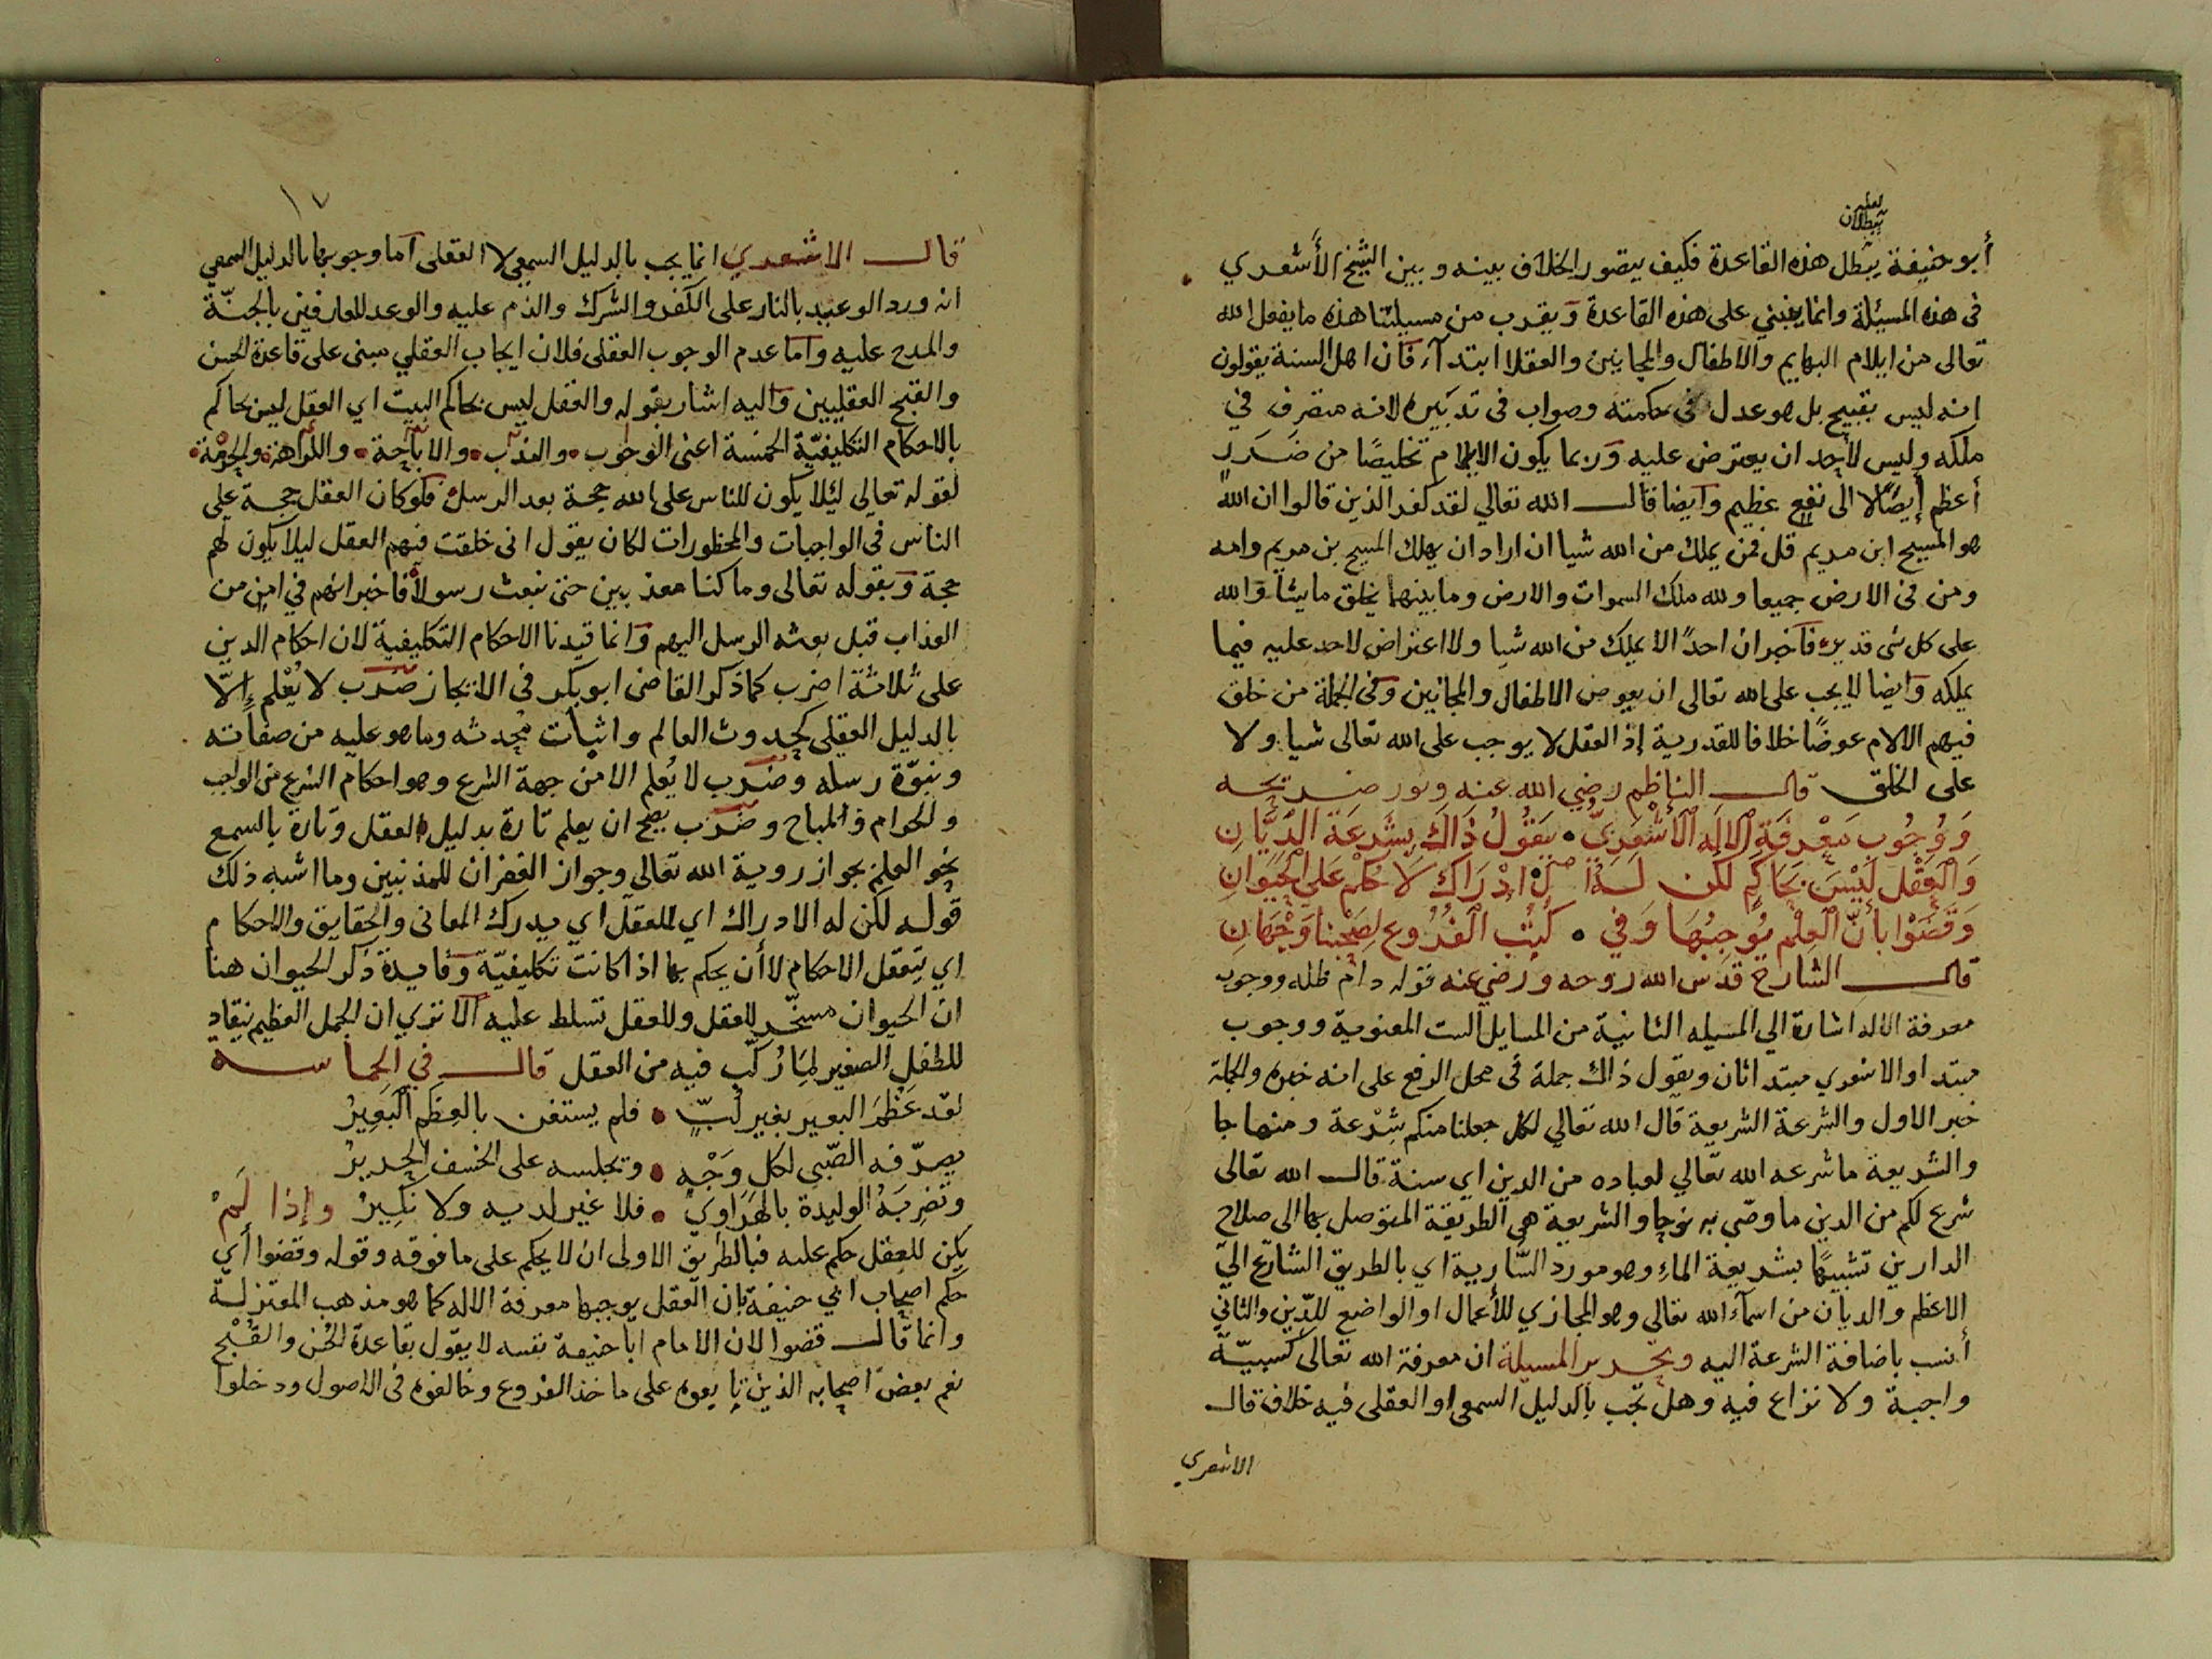 لعله
ببطلان
أبو حنيفة يبطل هذه القاعدة فكيف يتصور الخلاف بينه وبين الشيخ الأشعري
فى هذه المسئلة وانما ينبني على هذه القاعدة ويقرب من مسيلتنا هذه ما يفعل الله
تعالى من ايلام البهايم والاطفال والمجانين والعقلا ابتدآء فان اهل السنة يقولون
انه ليس بقبيح بل هو عدل فى حكمته وصواب فى تدبيره لانه متصرف في
ملكه وليس لأحد ان يعترض عليه وربما يكون الايلام تخليصًا من ضرر
أعظم إيصالا الى نفع عظيم وايضا قال الله تعالي لقد كفر الذين قالوا ان الله
هو المسيح ابن مريم قل فمن يملك من الله شيا ان اراد ان يهلك المسيح بن مريم وامه
ومن فى الارض جميعا ولله ملك السموات والارض وما بينهما يخلق ما يشا والله
على كل شى قدير فاخبر ان احدًا لا يملك من الله شيا ولا اعتراض لاحد عليه فيما
يملكه وايضا لا يجب على الله تعالى ان يعوض الاطفال والمجانين وفى الجملة من خلق
فيهم الالام عوضًا خلافا للقدرية إذ العقل لا يوجب على الله تعالى شيا ولا
على الخلق قال الناظم رضي الله عنه ونور ضريحه
وَوُجُوب مَعْرفَةِ الالَه الأشْعَريّ • يَقُولُ ذَاكَ بِشَرعَة الدَّيَّانِ
وَالعَقْل لَيْسَ بحَاكم لكن لَهُ الْ ادْرَاك لَا حُكْم عَلى الحَيَوانِ
وَقَضَوْا بأنّ العِلْم يُوجِبُهَا وَفي • كُتُب الفُرُوع لِصَحْبنا وَجْهَانِ
قال الشارح قدس الله روحه ورضي عنه قوله دام ظله ووجوب
معرفة الاله اشارة الي المسيله الثانية من المسايل الست المعنوية ووجوب
مبتدا والاشعري مبتدا ثان ويقول ذاك جملة فى محل الرفع على انه خبره والجملة
خبر الاول والشرعة الشريعة قال الله تعالي لكل جعلنا منكم شِرْعة ومنهاجا
والشريعة ما شرعه الله تعالي لعباده من الدين اي سنة قال الله تعالى
شرع لكم من الدين ما وصّى به نوحا والشريعة هى الطريقة المتوصل بها الى صلاح
الدارين تشبيهًا بشريعة الماءِ وهو مورد السّارية اي بالطريق الشارع الي
الاعظم والديان من اسمآء الله تعالى وهو المجازي للأعمال او الواضع للدّين والثاني
أنسب باضافة الشرعة اليه وتحرير المسيلة ان معرفة الله تعالى كسبيّة
واجبة ولا نزاع فيه وهل تجب بالدليل السمعى او العقلى فيه خلاف قال
الاشعري
١٧
قال الاشعري انما يجب بالدليل السمعي لا العقلى اما وجوبها بالدليل السمعي
انه ورد الوعيد بالنار على الكفر والشرك والذم عليه والوعد للعارفين بالجنّة
والمدح عليه واما عدم الوجوب العقلى فلان ايجاب العقلي مبنى على قاعدة الحسن
والقبح العقليين واليه اشار بقوله والعقل ليس بحاكم البيت اي العقل ليس بحاكم
بالاحكام التكليفيّة الخمسة اعنى الوجوب • والندب • والاباحة • والكراهة • والحرمة •
لقوله تعالى ليُلا يكون للناس على الله حجة بعد الرسل فلو كان العقل حجة على
الناس فى الواجبات والمحظورات لكان يقول انى خلقت فيهم العقل ليلا يكون لهم
حجة وبقوله تعالى وما كنا معذبين حتى نبعث رسولا فاخبر انهم في امن من
العذاب قبل بعثه الرسل اليهم وانما قيدنا الاحكام التكليفية لان احكام الدين
على ثلاثة اضرب كما ذكر القاضى ابو بكر فى الايجاز ضرب لا يُعْلم إلّا
بالدليل العقلى كحدوث العالم واثبات مُحدثه وما هو عليه من صفاته
ونبوّة رسله وضرب لا يُعلم الا من جهة الشرع وهو احكام الشرع من الواجب
والحرام والمباح وضرب يصح ان يعلم تارة بدليل العقل وتارة بالسمع
نحو العلم بجواز روية الله تعالى وجواز الغفران للمذنبين وما اشبه ذلك
قوله لكن له الادراك اي للعقل اي يدرك المعانى والحقايق والاحكام
اي يتعقل الاحكام لا أن يحكم بها اذا كانت تكليفيّة وفايدة ذكر الحيوان هنا
ان الحيوان مسخّر للعقل وللعقل تسلط عليه الا تري ان الجمل العظيم ينقاد
للطفل الصغير لِمَا رُكّب فيه من العقل قال في الحماسة
لقد عَظُمَ البعير بغير لُبّ • فلم يستغن بالعِظَم البَعِيرُ
يصرّفه الصّبي لكل وَجْهٍ • وتحبسه على الخسف الجريرُ
وتَضرِبَهُ الوليدة بالهَرَاوي • فلا غِيَر لديه ولا نَكِيرُ وإذا لَمْ
يكن للعقل حكم عليه فبالطريق الاولى ان لا يحكم على ما فوقه وقوله وقضوا أي
حكم اصحاب ابي حنيفة بان العقل يوجبها معرفة الاله كما هو مذهب المعتزلة
وانما قال قضوا لان الامام ابا حنيفة نفسه لا يقول بقاعدة الحُسن والقُبْح
نعم بعض اصحابه الذين تابعوه على ماخذ الفروع وخالفوه فى الاصول ودخلوا